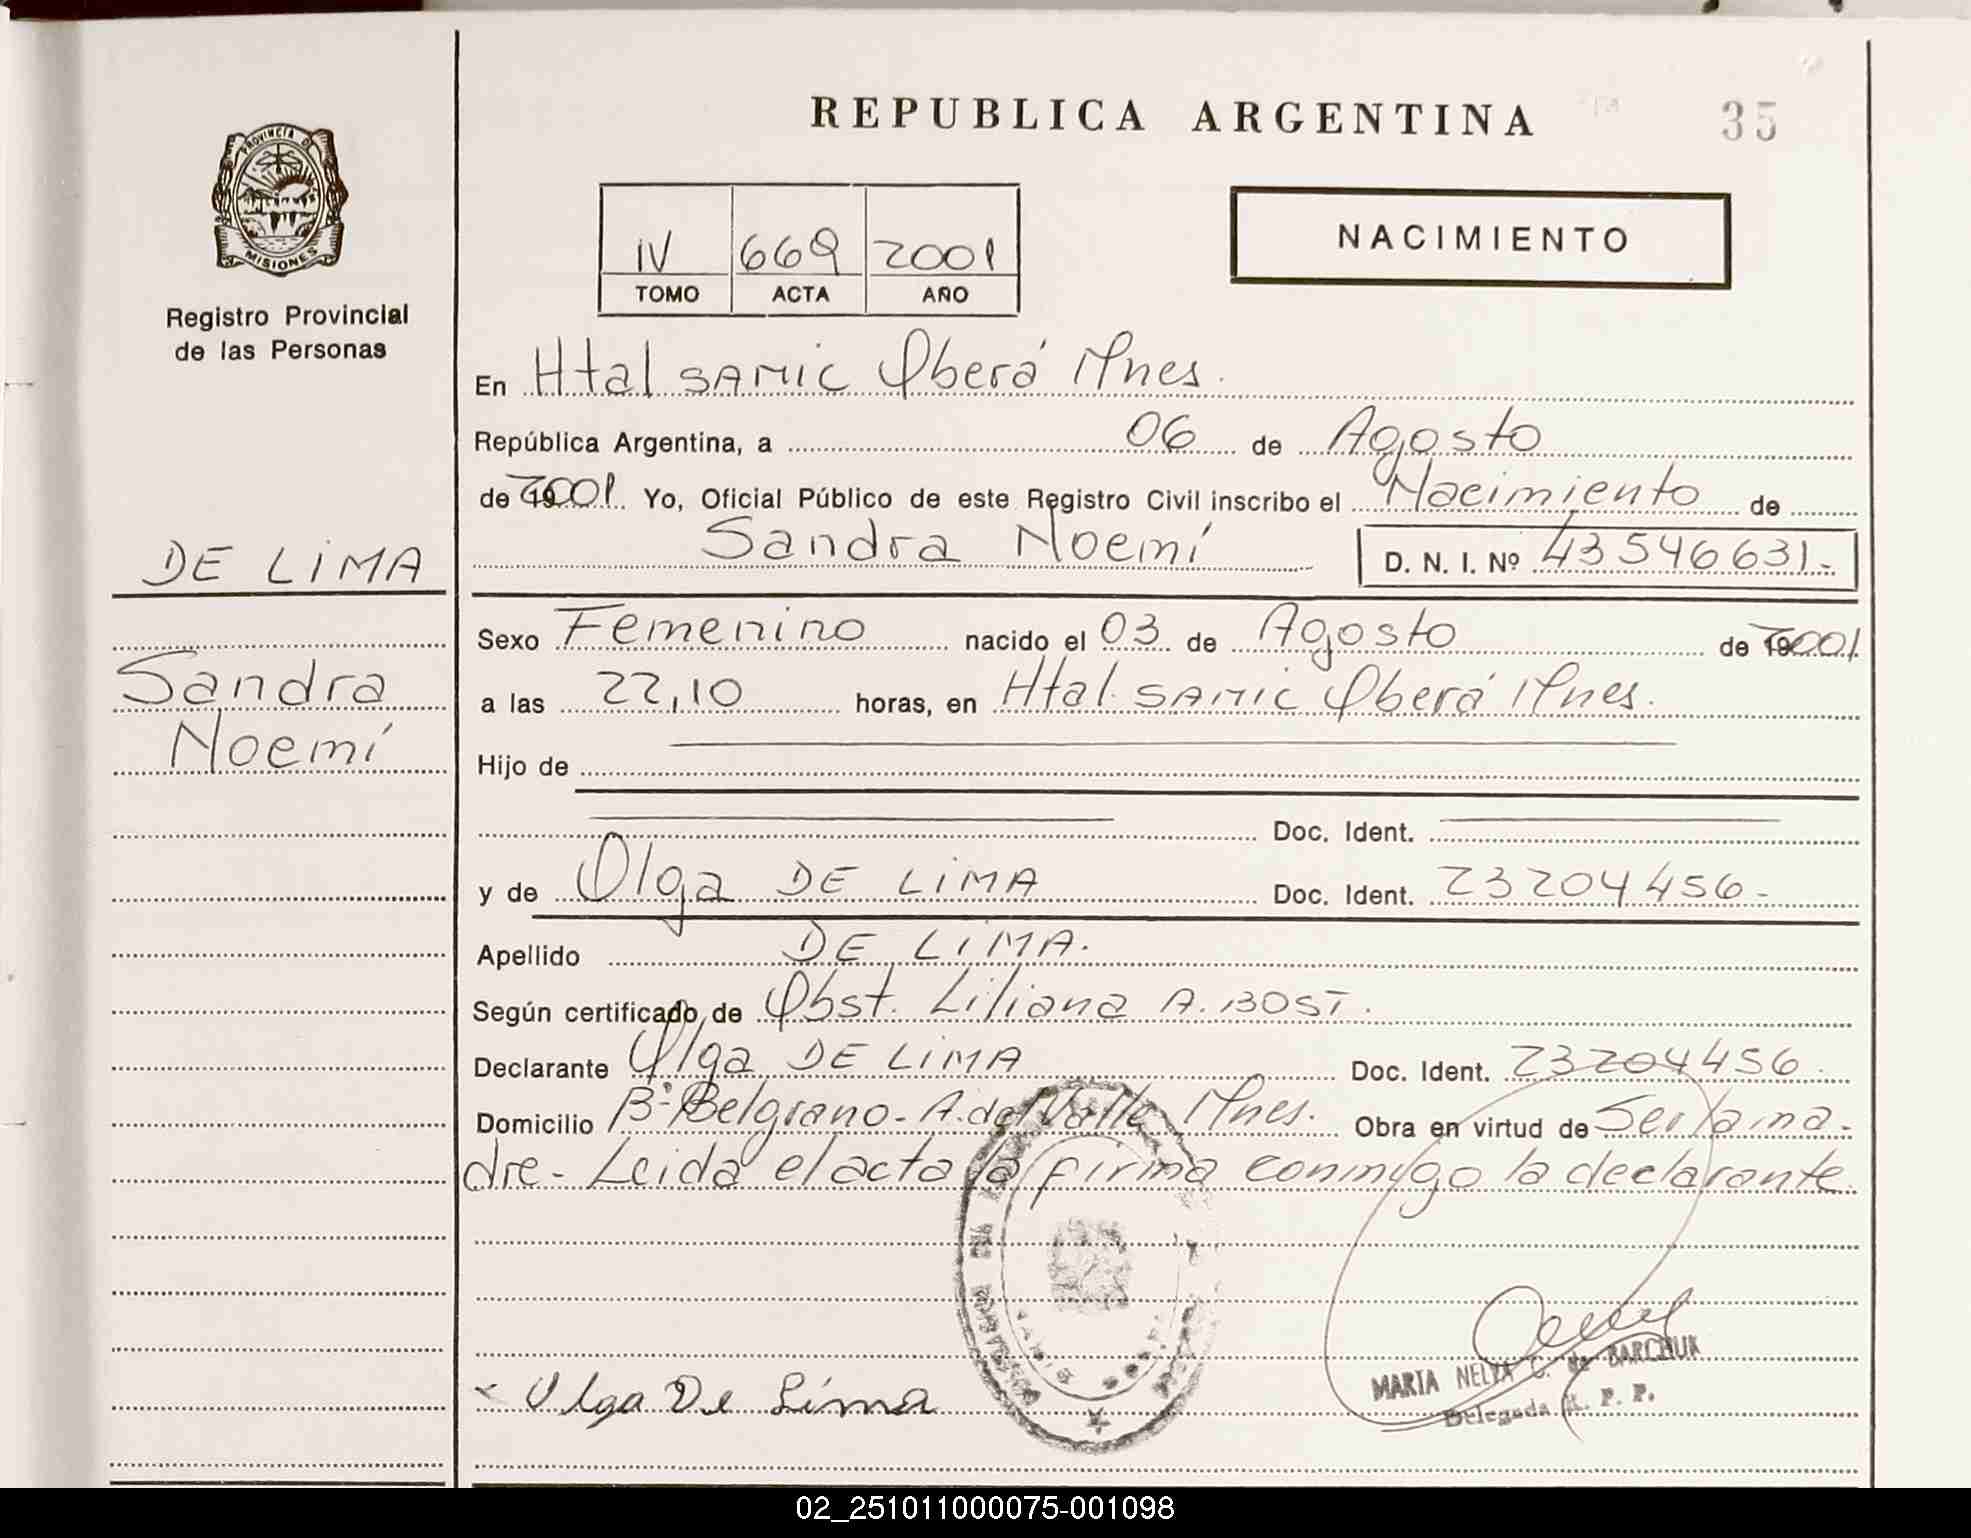 REPUBLICA ARGENTINA
35
PROVINCIA DE
MISIONES
Registro Provincial
de las Personas
IV 669 2001
TOMO ACTA AÑO
NACIMIENTO
En Htal SAMIC Oberá Mnes.
República Argentina, a 06 de Agosto
de 2001. Yo, Oficial Público de este Registro Civil inscribo el Nacimiento de
Sandra Noemí D. N. I. Nº 43546631.-
DE LIMA
Sexo Femenino nacido el 03 de Agosto de 2001
Sandra
a las 22,10 horas, en Htal. SAMIC Oberá Mnes.
Noemí
Hijo de
Doc. Ident.
y de Olga DE LIMA Doc. Ident. 23204456-
Apellido DE LIMA.
Según certificado de Obst. Liliana A. BOST.
Declarante Olga DE LIMA Doc. Ident. 23204456.
Domicilio Bº Belgrano - A. del Valle Mnes. Obra en virtud de Ser la ma-
dre - Leida el acta la firma conmigo la declarante.
Olga De Lima
MARTA NELYA C. de BARCHUK
Delegada R. P. P.
02_251011000075-001098